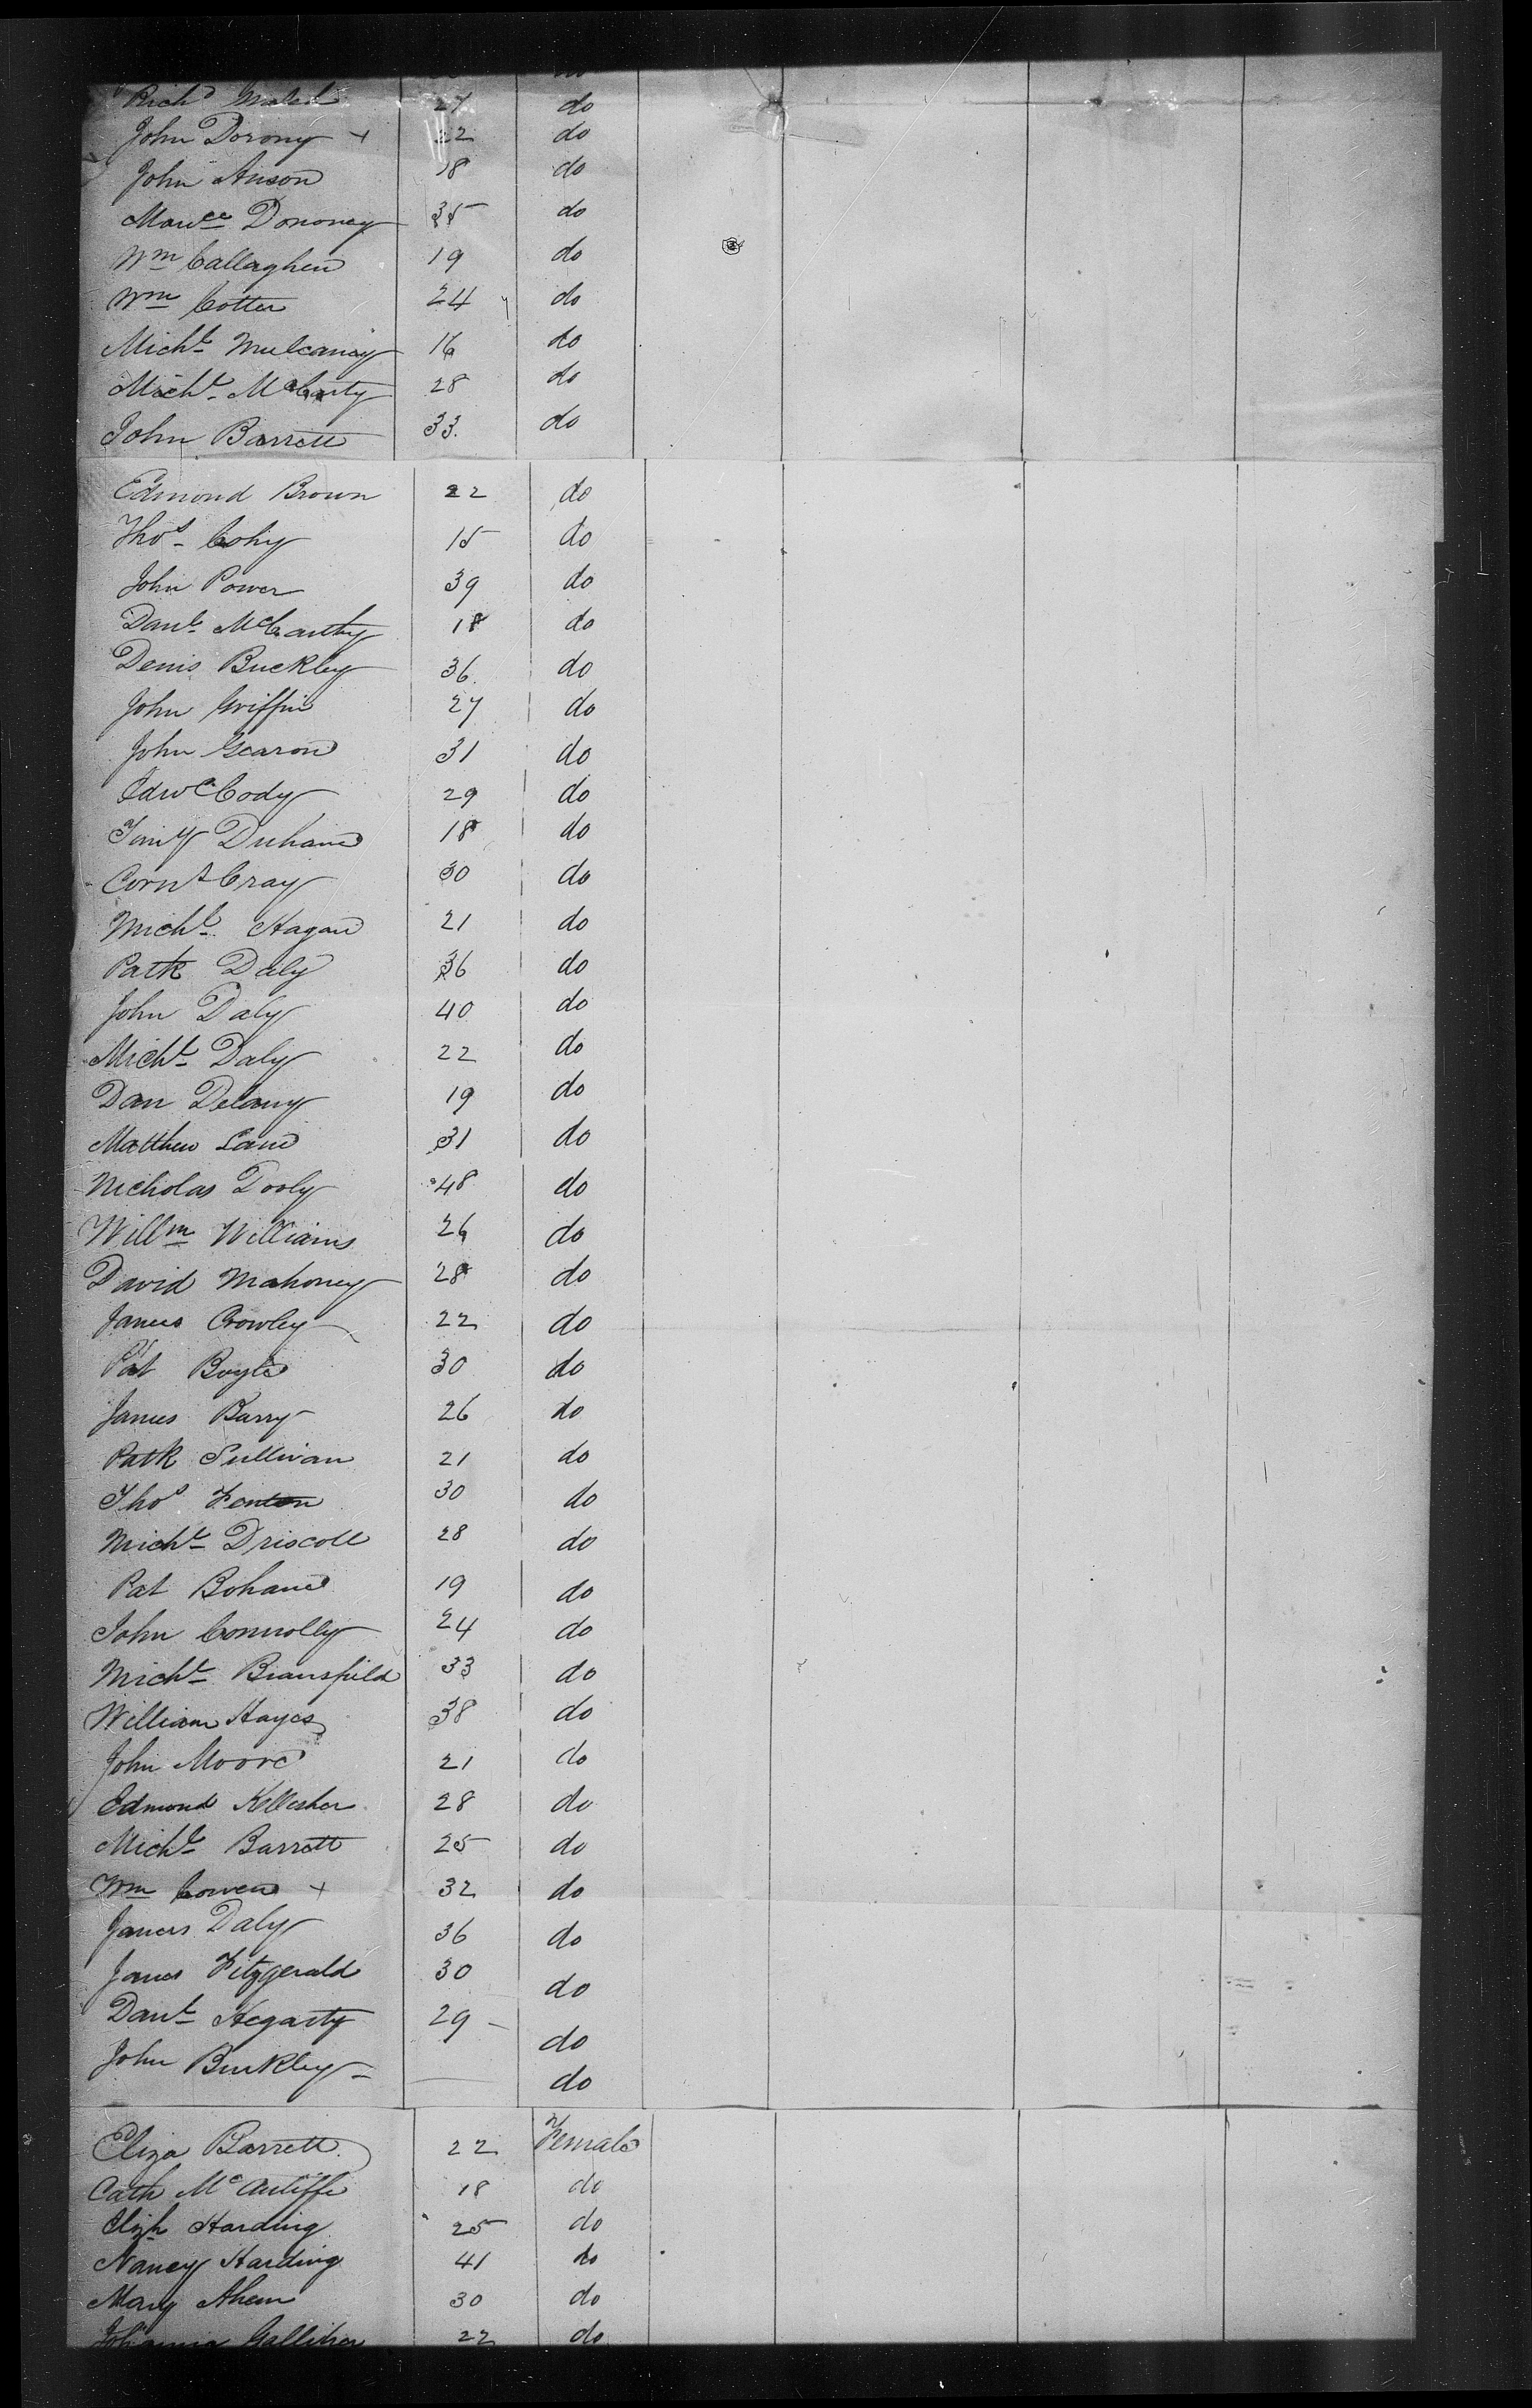 Richd 27 do
John Dorony + 22 do
John Anson 18 do
Mauce Dononey 35 do
Wm Callaghen 19 do
Wm Cotter 24 do
Michl Mulcanay 16 do
Michl McCarty 28 do
John Barrett 33. do
Edmond Brown 22 do
Thos Cohy 15 do
John Power 39 do
Danl McCarthy 18 do
Denis Buckley 36 do
John Griffin 27 do
John Gearon 31 do
Edwd Cody 29 do
Timy Duhane 18 do
Corns Cray 30 do
Michl Hagan 21 do
Patk Daly 36 do
John Daly 40 do
Michl Daly 22 do
Dan Delany 19 do
Matthew Lane 31 do
Nicholas Dooly 48 do
Willm Williams 26 do
David Mahoney 28 do
James Crowley 22 do
Pat Boyle 30 do
James Barry 26 do
Patk Sullivan 21 do
Thos Fenton 30 do
Michl Driscoll 28 do
Pat Bohane 19 do
John Connolly 24 do
Michl Bransfield 33 do
William Hayes 38 do
John Moore 21 do
Edmond Kellesher 28 do
Michl Barrett 25 do
Wm Cowen + 32 do
James Daly 36 do
James Fitzgerald 30 do
Danl Hegarty 29 - do
John Burkley - do
Eliza Barrett 22 Female
Cath McAuliffe 18 do
Elizh Harding 25 do
Nancy Harding 41 do
Mary Ahern 30 do
Johanna Galliher 22 do